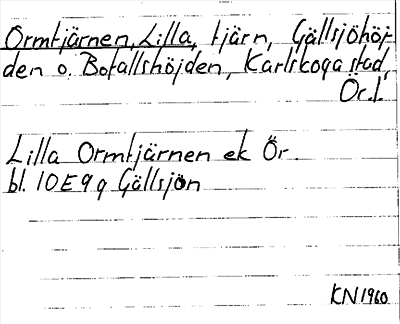 Ormtjärnen, Lilla, tjärn, Gällsjöhöj-
den o. Bofallshöjden, Karlskoga stad,
Ör.l.
Lilla Ormtjärnen ek Ör.
bl. 10E9g Gällsjön
KN1960